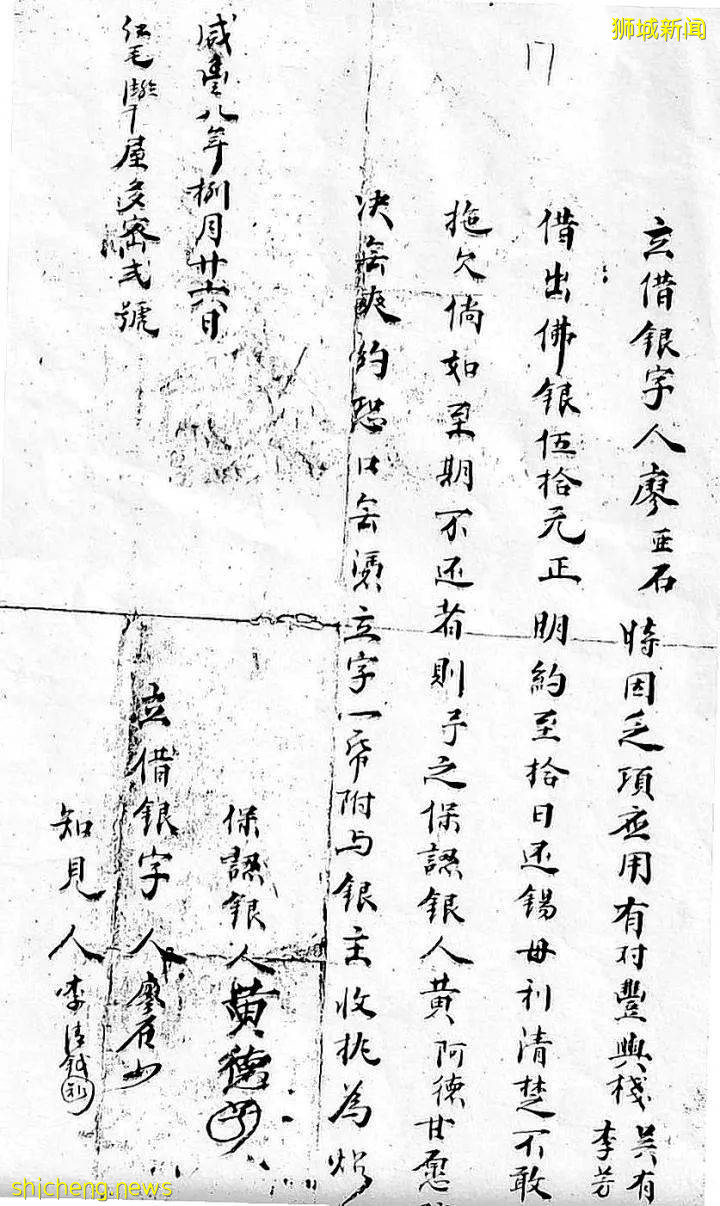 狮城新闻
17
立借銀字人廖亜石時因乏項應用有对豐興棧吴有李芳
借出佛銀伍拾元正明約至拾日还錫母利清楚不敢
拖欠倘如至期不还者則予之保認銀人黄阿德甘愿
决無爽約恐口無憑立字一帋附与銀主收执為炤
保認銀人黄德
立借銀字人廖石
知見人李
咸豐八年捌月廿六日
紅毛屋多密弍號
shicheng.news